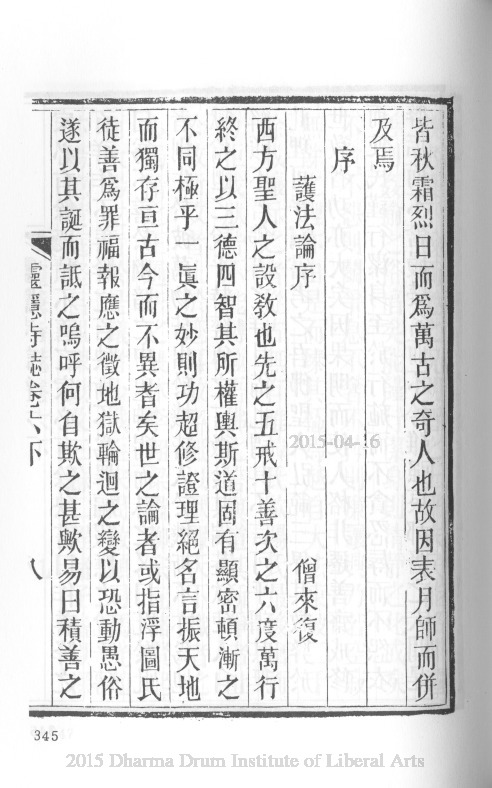 皆秋霜烈日而爲萬古之奇人也故因表月師而併
及焉
序
護法論序
僧來復
西方聖人之設教也先之五戒十善次之六度萬行
終之以三德四智其所權輿斯道固有顯密頓漸之
不同極乎一眞之妙則功超修證理絕名言振天地
而獨存亘古今而不異者矣世之論者或指浮圖氏
徒善爲罪福報應之徵地獄輪迴之變以恐動愚俗
遂以其誕而詆之嗚呼何自欺之甚歟易曰積善之
靈隱寺誌卷六下
八
345
2015-04-16
2015 Dharma Drum Institute of Liberal Arts